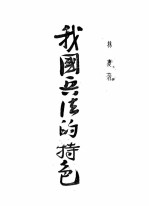 我國兵法的特色
林